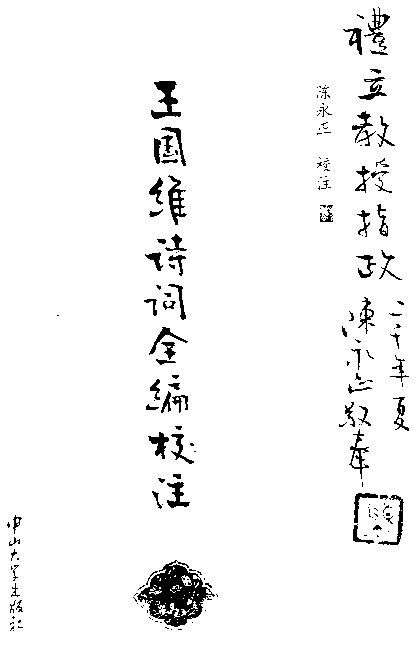 禮立教授指政
二千年夏
陳永正敬奉
陈永正 校注
王国维诗词全编校注
中山大学出版社